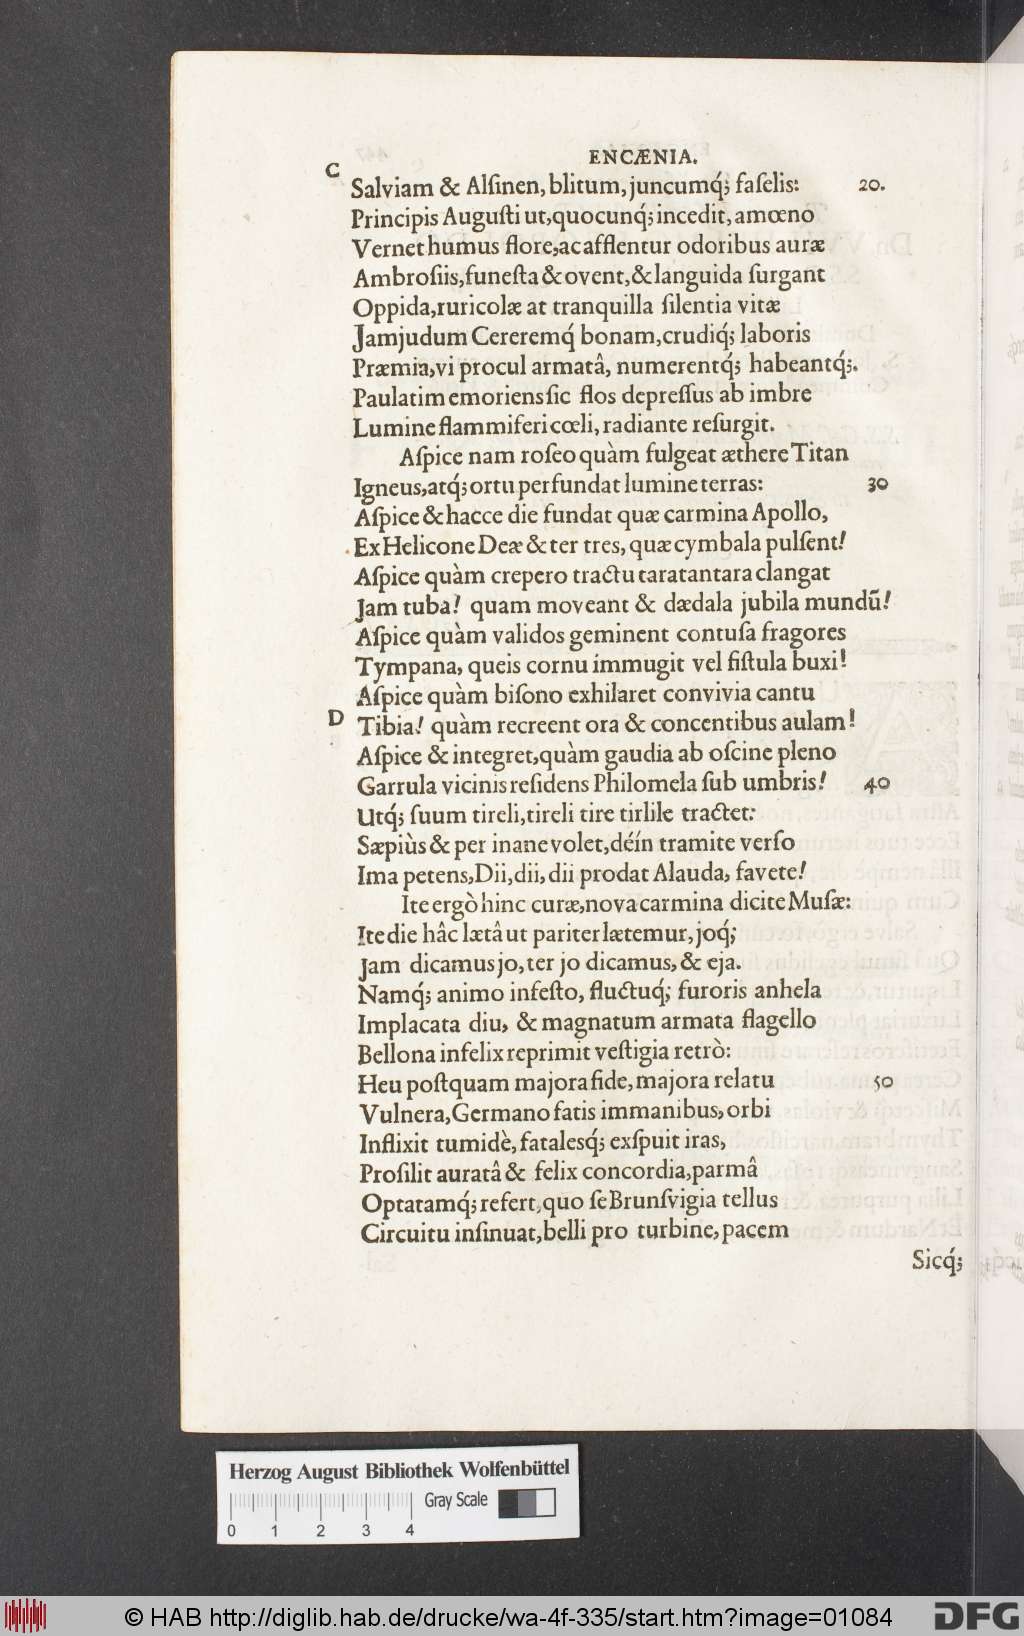 ENCÆNIA.
C
Salviam & Alſinen, blitum, juncumq́; faſelis: 20.
Principis Auguſti ut, quocunq́; incedit, amœno
Vernet humus flore, ac afflentur odoribus auræ
Ambroſiis, funeſta & ovent, & languida ſurgant
Oppida, ruricolæ at tranquilla ſilentia vitæ
Jamjudum Cereremq́ bonam, crudiq́; laboris
Præmia, vi procul armatâ, numerentq́; habeantq́;.
Paulatim emoriens ſic flos depreſſus ab imbre
Lumine flammiferi cœli, radiante reſurgit.
Aſpice nam roſeo quàm fulgeat æthere Titan
Igneus, atq́; ortu perfundat lumine terras: 30
Aſpice & hacce die fundat quæ carmina Apollo,
Ex Helicone Deæ & ter tres, quæ cymbala pulſent!
Aſpice quàm crepero tractu taratantara clangat
Jam tuba! quam moveant & dædala jubila mundũ!
Aſpice quàm validos geminent contuſa fragores
Tympana, queis cornu immugit vel fiſtula buxi!
Aſpice quàm biſono exhilaret convivia cantu
D
Tibia! quàm recreent ora & concentibus aulam!
Aſpice & integret, quàm gaudia ab oſcine pleno
Garrula vicinis reſidens Philomela ſub umbris! 40
Utq́; ſuum tireli, tireli tire tirlile tractet:
Sæpiùs & per inane volet, déín tramite verſo
Ima petens, Dii, dii, dii prodat Alauda, favete!
Ite ergò hinc curæ, nova carmina dicite Muſæ:
Ite die hâc lætâ ut pariter lætemur, joq́;
Jam dicamus jo, ter jo dicamus, & eja.
Namq́; animo infeſto, fluctuq́; furoris anhela
Implacata diu, & magnatum armata flagello
Bellona infelix reprimit veſtigia retrò:
Heu poſtquam majora fide, majora relatu 50
Vulnera, Germano fatis immanibus, orbi
Inflixit tumidè, fatalesq́; exſpuit iras,
Proſilit auratâ & felix concordia, parmâ
Optatamq́; refert, quo ſe Brunſvigia tellus
Circuitu inſinuat, belli pro turbine, pacem
Sicq́;
Herzog August Bibliothek Wolfenbüttel
Gray Scale
0 1 2 3 4
© HAB http://diglib.hab.de/drucke/wa-4f-335/start.htm?image=01084
DFG